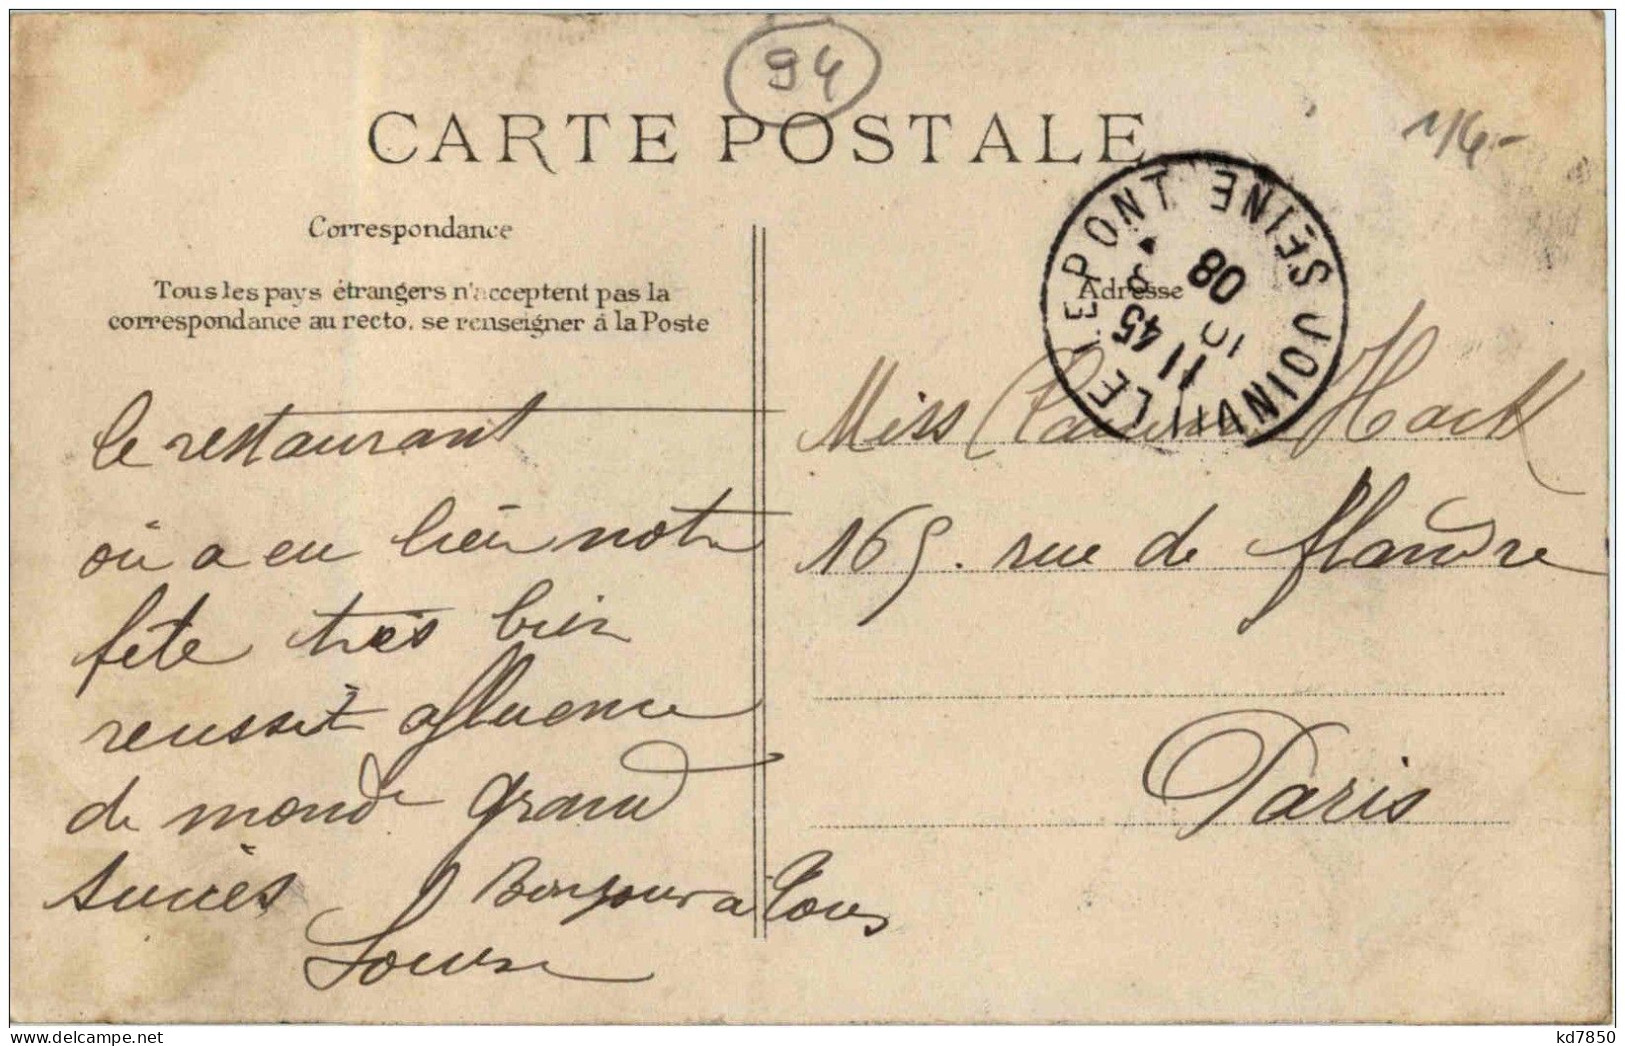 94
CARTE POSTALE
1/4-
Correspondance
Tous les pays étrangers n'acceptent pas la
correspondance au recto, se renseigner à la Poste
Adresse
JOINVILLE LE PONT SEINE
11 45
10
08
le restaurant
où a eu lieu notre
fete très bien
reussit affluence
de monde grand
succès Bonjour a Tous
Louise
Miss Hack
165. rue de flandre
Paris
kd7850